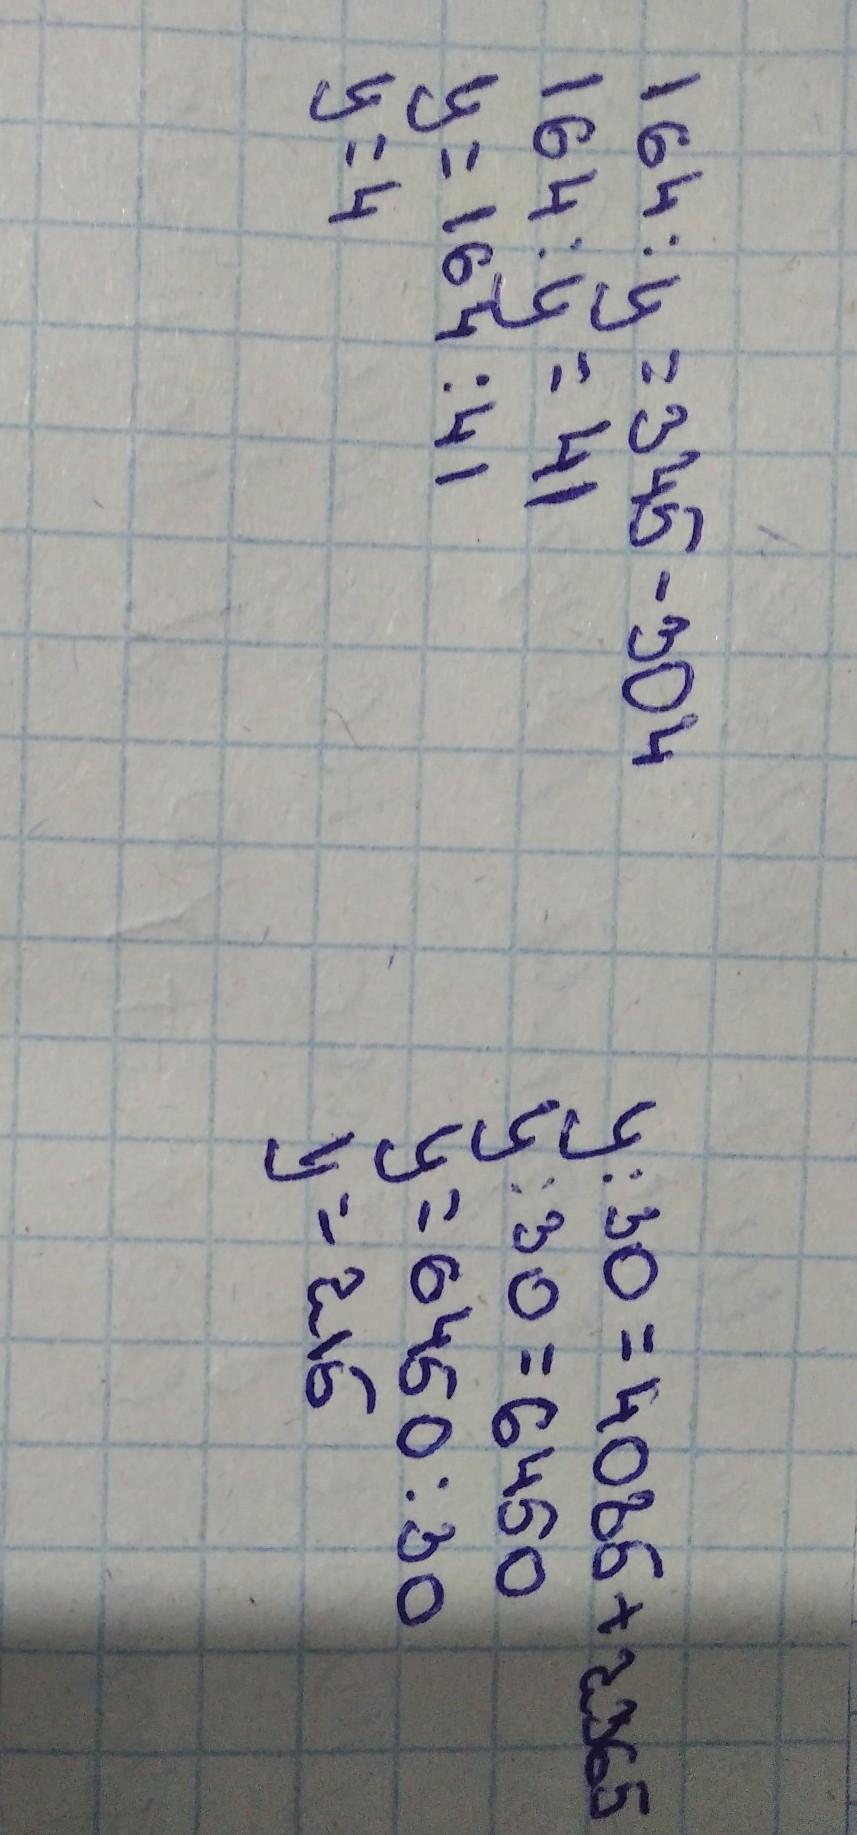 164:y=345-304
164:y=41
y=164:41
y=4
y:30=4085+2365
y:30=6450
y=6450:30
y=215